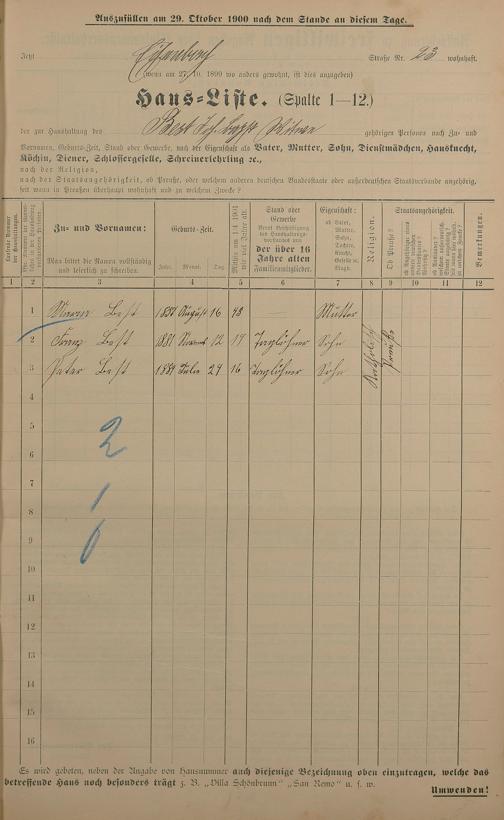 Auszufüllen am 29. Oktober 1900 nach dem Stande an diesem Tage.
Jetzt Straße Nr. 23 wohnhaft.
(wenn am 27. 10. 1899 wo anders gewohnt, ist dies anzugeben)
Haus-Liste. (Spalte 1—12.)
der zur Haushaltung des Best Joh. Witwe gehörigen Personen nach Zu- und
Vornamen, Geburts-Zeit, Stand oder Gewerbe, nach der Eigenschaft als Vater, Mutter, Sohn, Dienstmädchen, Hausknecht,
Köchin, Diener, Schlossergeselle, Schreinerlehrling ec.,
nach der Religion,
nach der Staatsangehörigkeit, ob Preuße, oder welchem anderen deutschen Bundesstaate oder außerdeutschen Staatsverbande angehörig,
seit wann in Preußen überhaupt wohnhaft und zu welchem Zwecke?
Zu- und Vornamen:
Man bittet die Namen vollständig
und leserlich zu schreiben.
Geburts-Zeit.
Jahr. Monat. Tag.
Stand oder
Gewerbe
der über 16
Jahre alten
Familienmitglieder.
Eigenschaft:
ob Vater,
Mutter,
Sohn,
Tochter,
Knecht,
Geselle u.
Magd.
Religion.
Ob Preuße?
Staatsangehörigkeit.
Bemerkungen.
1 2 3 4 5 6 7 8 9 10 11 12
1 Best 1857 August 16 43 Mutter
2 Franz Best 1881 12 19 Taglöhner Sohn
3 Peter Best 1884 Julie 29 16 Taglöhner Sohn
Katholisch
4
5
6
7
8
9
10
11
12
13
14
15
16
2
1
0
Es wird gebeten, neben der Angabe von Hausnummer auch diejenige Bezeichnung oben einzutragen, welche das
betreffende Haus noch besonders trägt z. B. „Villa Schönbrunn" „San Remo" u. s. w.
Umwenden!